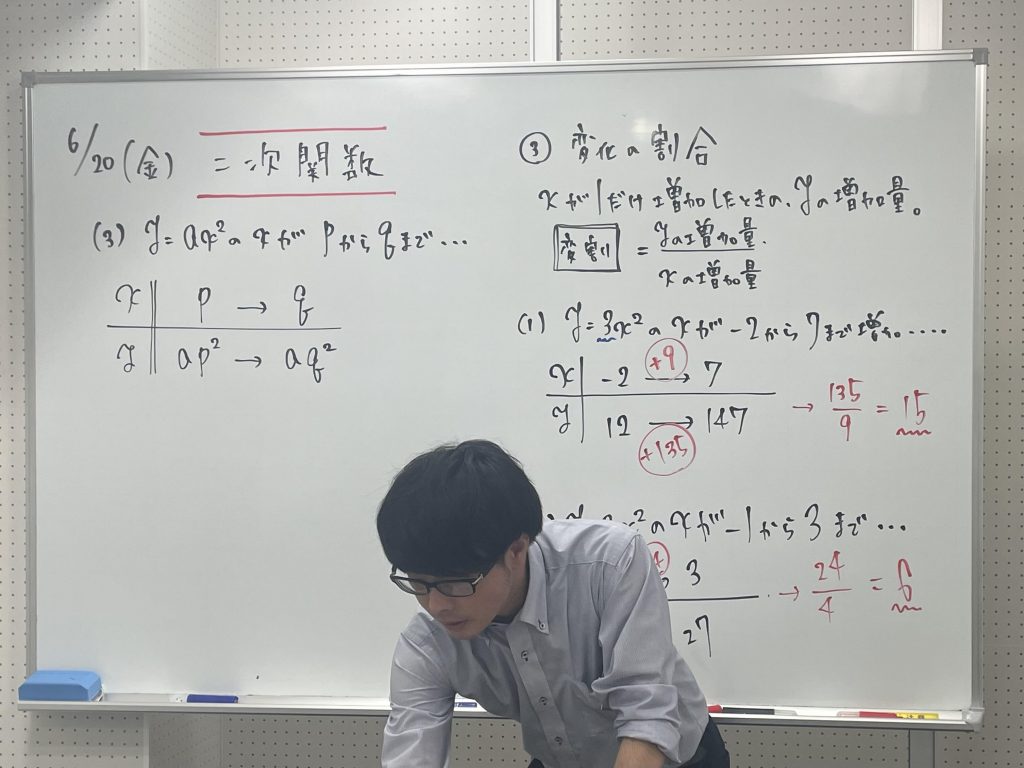 6/20(金) 二次関数
(3) y=ax²のxがpからqまで…
x p → q
y ap² → aq²
③ 変化の割合
xが1だけ増加したときの、yの増加量。
変割 = yの増加量 / xの増加量
(1) y=3x²のxが-2から7まで増加……
+9
x -2 → 7
y 12 → 147
+135
→ 135/9 = 15
x²のxが-1から3まで…
3
27
→ 24/4 = 6